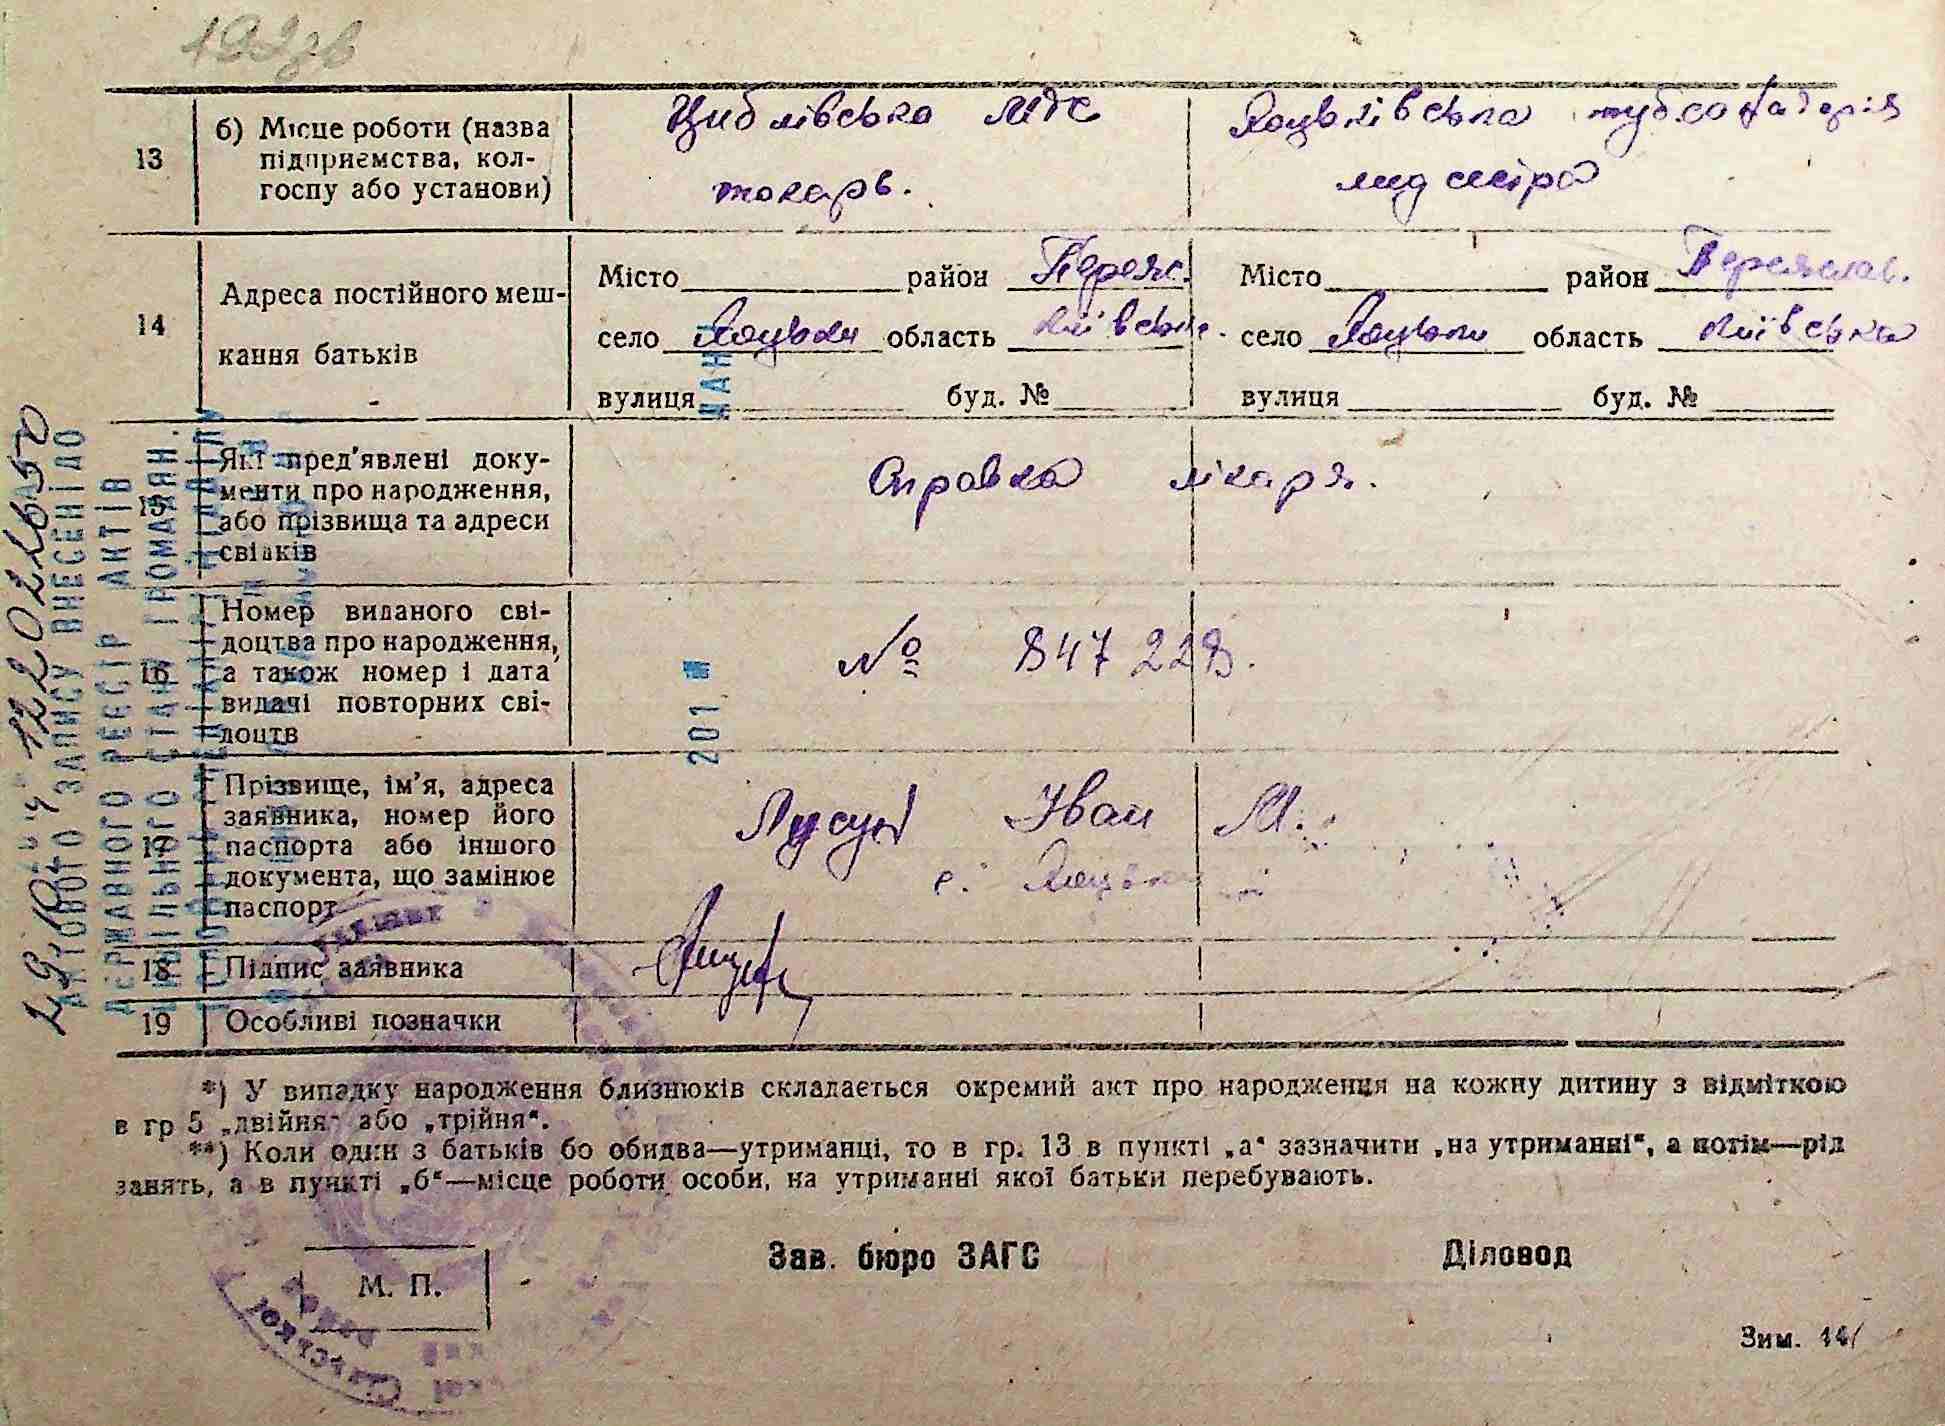 192зв
13
б) Місце роботи (назва
підприємства, кол-
госпу або установи)
Циблівська МТС
токарь.
Яцьківська тубсанаторія
мед сестра
14
Адреса постійного меш-
кання батьків
Місто район Переяс.
село Яцьки область Київська.
вулиця буд. №
Місто район Переяслав.
село Яцьки область Київська
вулиця буд. №
15
Які пред'явлені доку-
менти про народження,
або прізвища та адреси
свідків
Справка лікаря.
16
Номер виданого сві-
доцтва про народження,
а також номер і дата
видачі повторних сві-
доцтв
№ 847228.
17
Прізвище, ім'я, адреса
заявника, номер його
паспорта або іншого
документа, що замінює
паспорт
Іван М.
с.
18
Підпис заявника
19
Особливі позначки
*) У випадку народження близнюків складається окремий акт про народження на кожну дитину з відміткою
в гр 5 „двійня" або „трійня".
**) Коли один з батьків бо обидва—утриманці, то в гр. 13 в пункті „а" зазначити „на утриманні", а потім—рід
занять, а в пункті „б"—місце роботи особи, на утриманні якої батьки перебувають.
М. П.
Зав. бюро ЗАГС
Діловод
Зим. 14
АКТОВОГО ЗАПИСУ ВНЕСЕНІ ДО
ДЕРЖАВНОГО РЕЄСТР АКТІВ
ЦИВІЛЬНОГО СТАНУ ГРОМАДЯН.
201
Сільської
ради